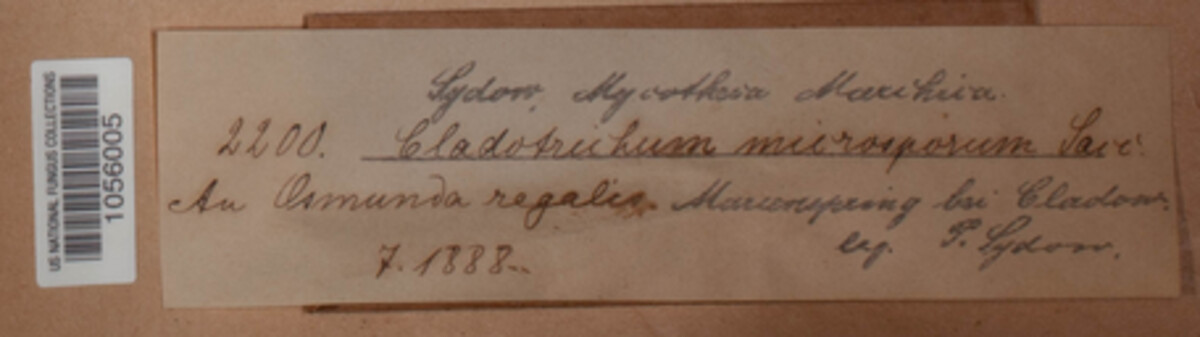 US NATIONAL FUNGUS COLLECTIONS
1056005
Sydow, Mycotheca Marchica.
2200. Cladotrichum microsporum Sacc.
An Osmunda regalis. Marienspring bei Cladow.
leg. P. Sydow.
7. 1888.